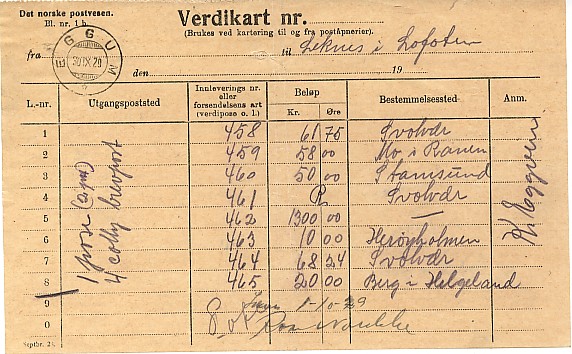 Det norske postvesen.
Bl. nr. 1 b.
Verdikart nr.
(Brukes ved kartering til og fra poståpnerier).
fra
EGGUM
30 IX 29
til Leknes i Lofoten
den 19
L.-nr. Utgangspoststed Innleverings nr. eller forsendelsens art (verdipose o. l.) Beløp Kr. Øre Bestemmelsessted Anm.
1 458 61 75 Svolvær
2 459 58 00 Mo i Ranen
3 460 50 00 Stamsund
4 461 R Svolvær
5 462 1300 00 —
6 463 10 00 Herøyholmen
7 464 68 24 Svolvær
8 465 20 00 Berg - Helgeland
9 1-10-29
0 8
1 pose
4 colly brevpost
Septbr. 2